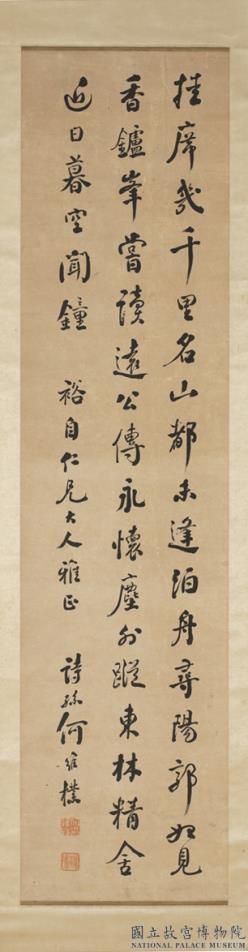 挂席幾千里名山都未逢泊舟尋陽郭如見
香鑪峯嘗讀遠公傳永懷塵外蹤東林精舍
近日暮空聞鐘 裕自仁兄大人雅正 詩孫何維樸
國立故宮博物院
NATIONAL PALACE MUSEUM